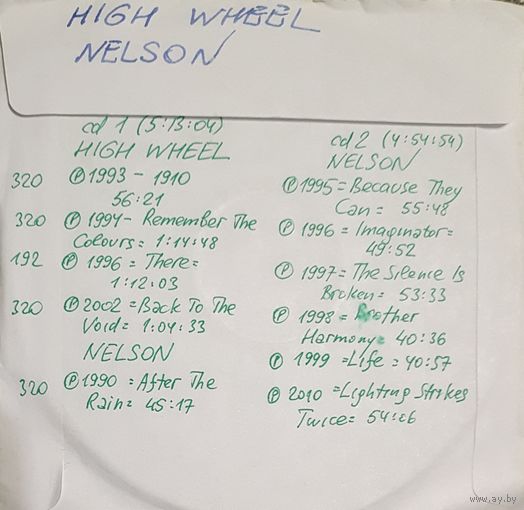 HIGH WHEEL
NELSON
cd 1 (5:13:04)
HIGH WHEEL
320 ℗ 1993 - 1910
56:21
320 ℗ 1994 - Remember The
Colours = 1:14:48
192 ℗ 1996 = There =
1:12:03
320 ℗ 2002 = Back To The
Void = 1:04:33
NELSON
320 ℗ 1990 = After The
Rain = 45:17
cd 2 (4:54:54)
NELSON
℗ 1995 = Because They
Can = 55:48
℗ 1996 = Imaginator =
49:52
℗ 1997 = The Silence Is
Broken = 53:33
℗ 1998 = Brother
Harmony = 40:36
℗ 1999 = Life = 40:57
℗ 2010 = Lighting Strikes
Twice = 54:26
www.ay.by